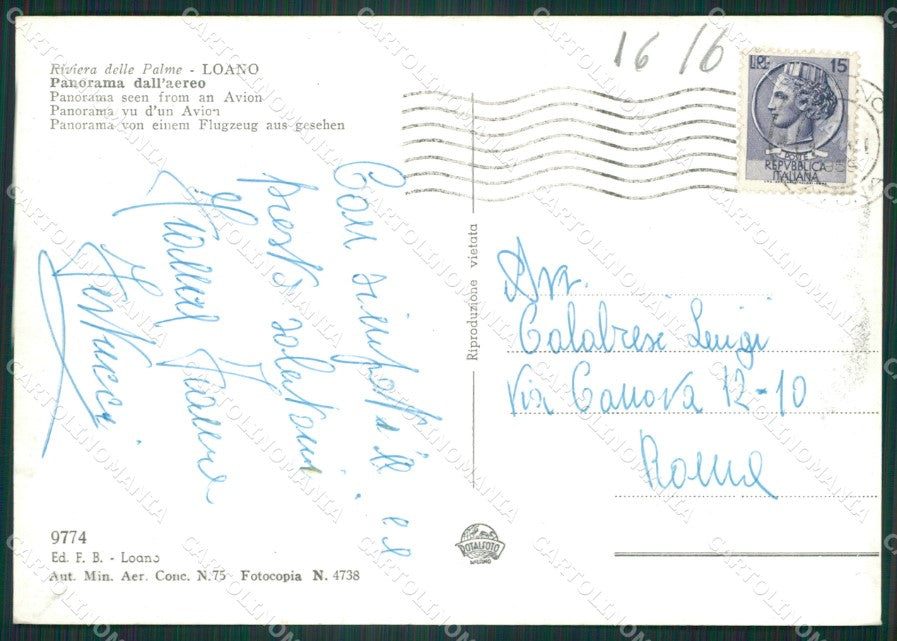 Riviera delle Palme - LOANO
Panorama dall'aereo
Panorama seen from an Avion
Panorama vu d'un Avion
Panorama von einem Flugzeug aus gesehen
16 16
LIRE 15
POSTE
REPVBBLICA
ITALIANA
Con simpatia. ed
presto
Riproduzione vietata
Calabrese Luigi
Via Canova 12-10
Roma
9774
Ed. F. B. - Loano
Aut. Min. Aer. Conc. N.75 Fotocopia N. 4738
ROTALFOTO
MILANO
CARTOLINOMANIA